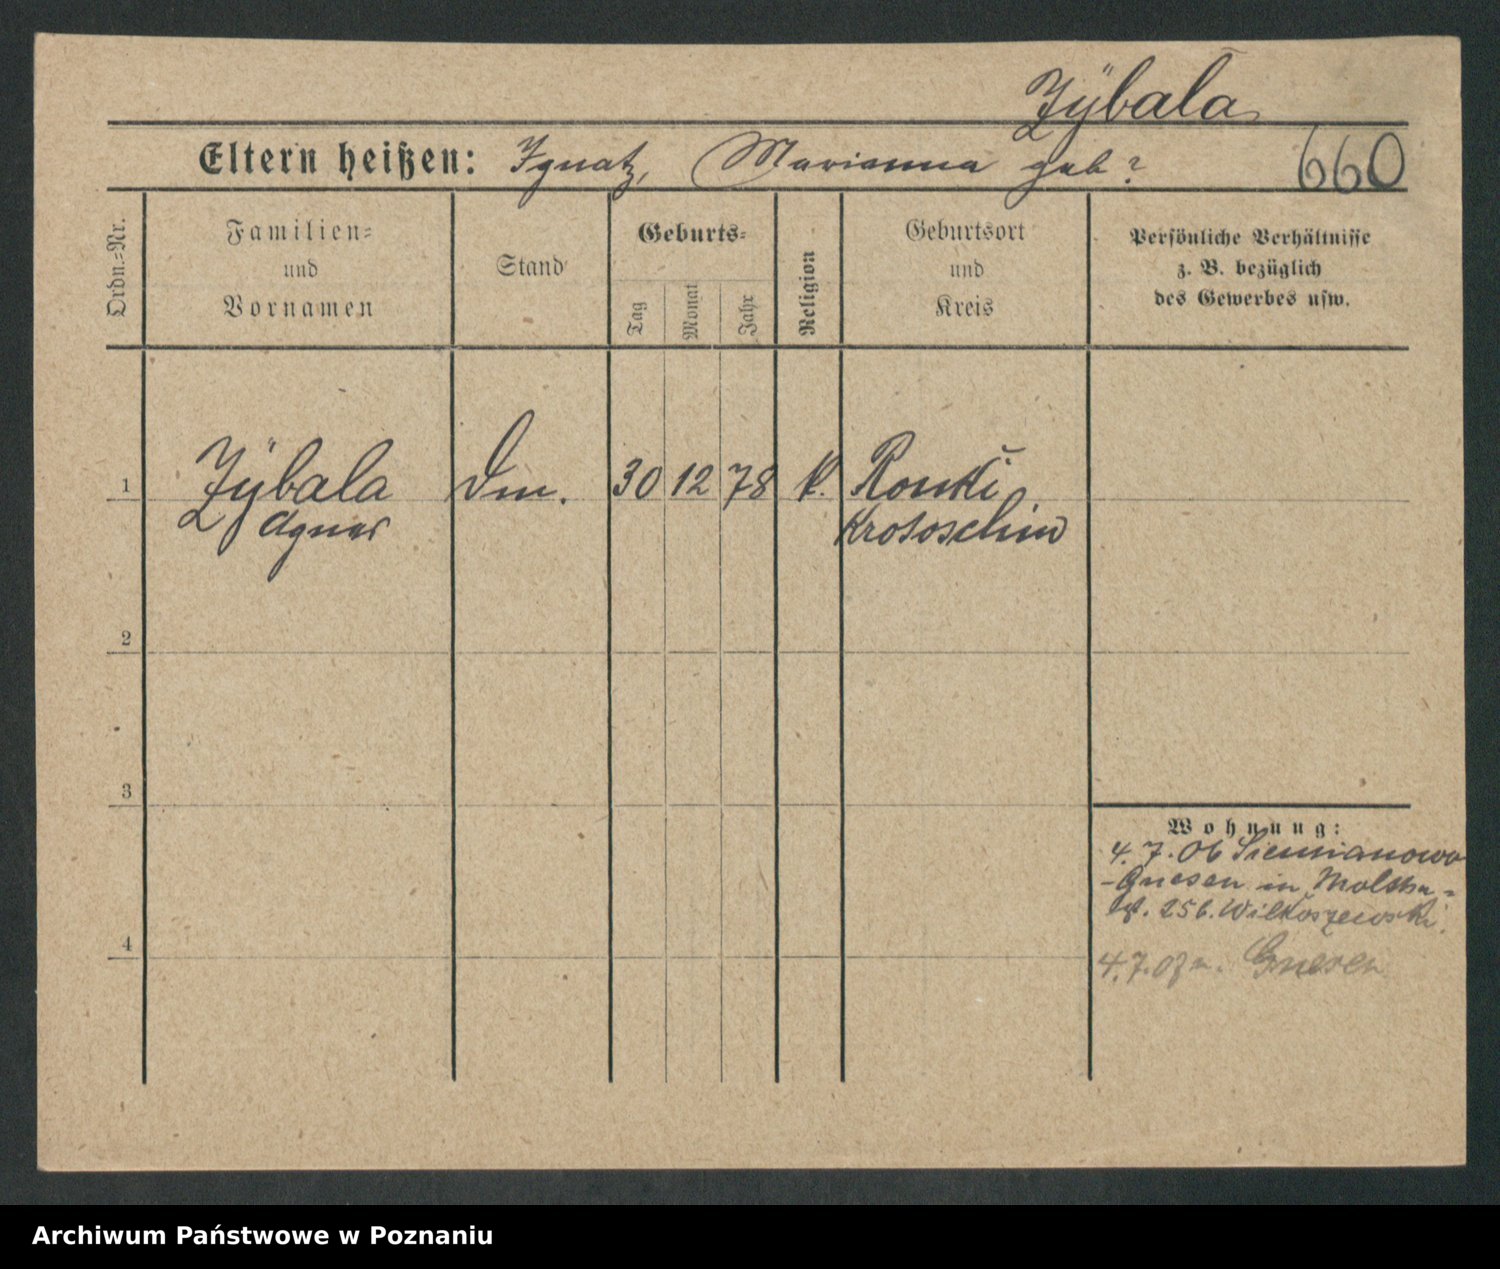 Zÿbala
Eltern heißen: Ignatz, Marianna geb?
660
Ordn.-Nr.
Familien-
und
Vornamen
Stand
Geburts-
Tag
Monat
Jahr
Religion
Geburtsort
und
Kreis
Persönliche Verhältnisse
z. B. bezüglich
des Gewerbes usw.
1
Zÿbala
Agnes
30 12 78
k.
Krotoschin
2
3
4
Wohnung:
4. 7. 06 Siemianowo
-Gnesen in
256. Wilkoszewski.
4.7.07 n. Gnesen
Archiwum Państwowe w Poznaniu